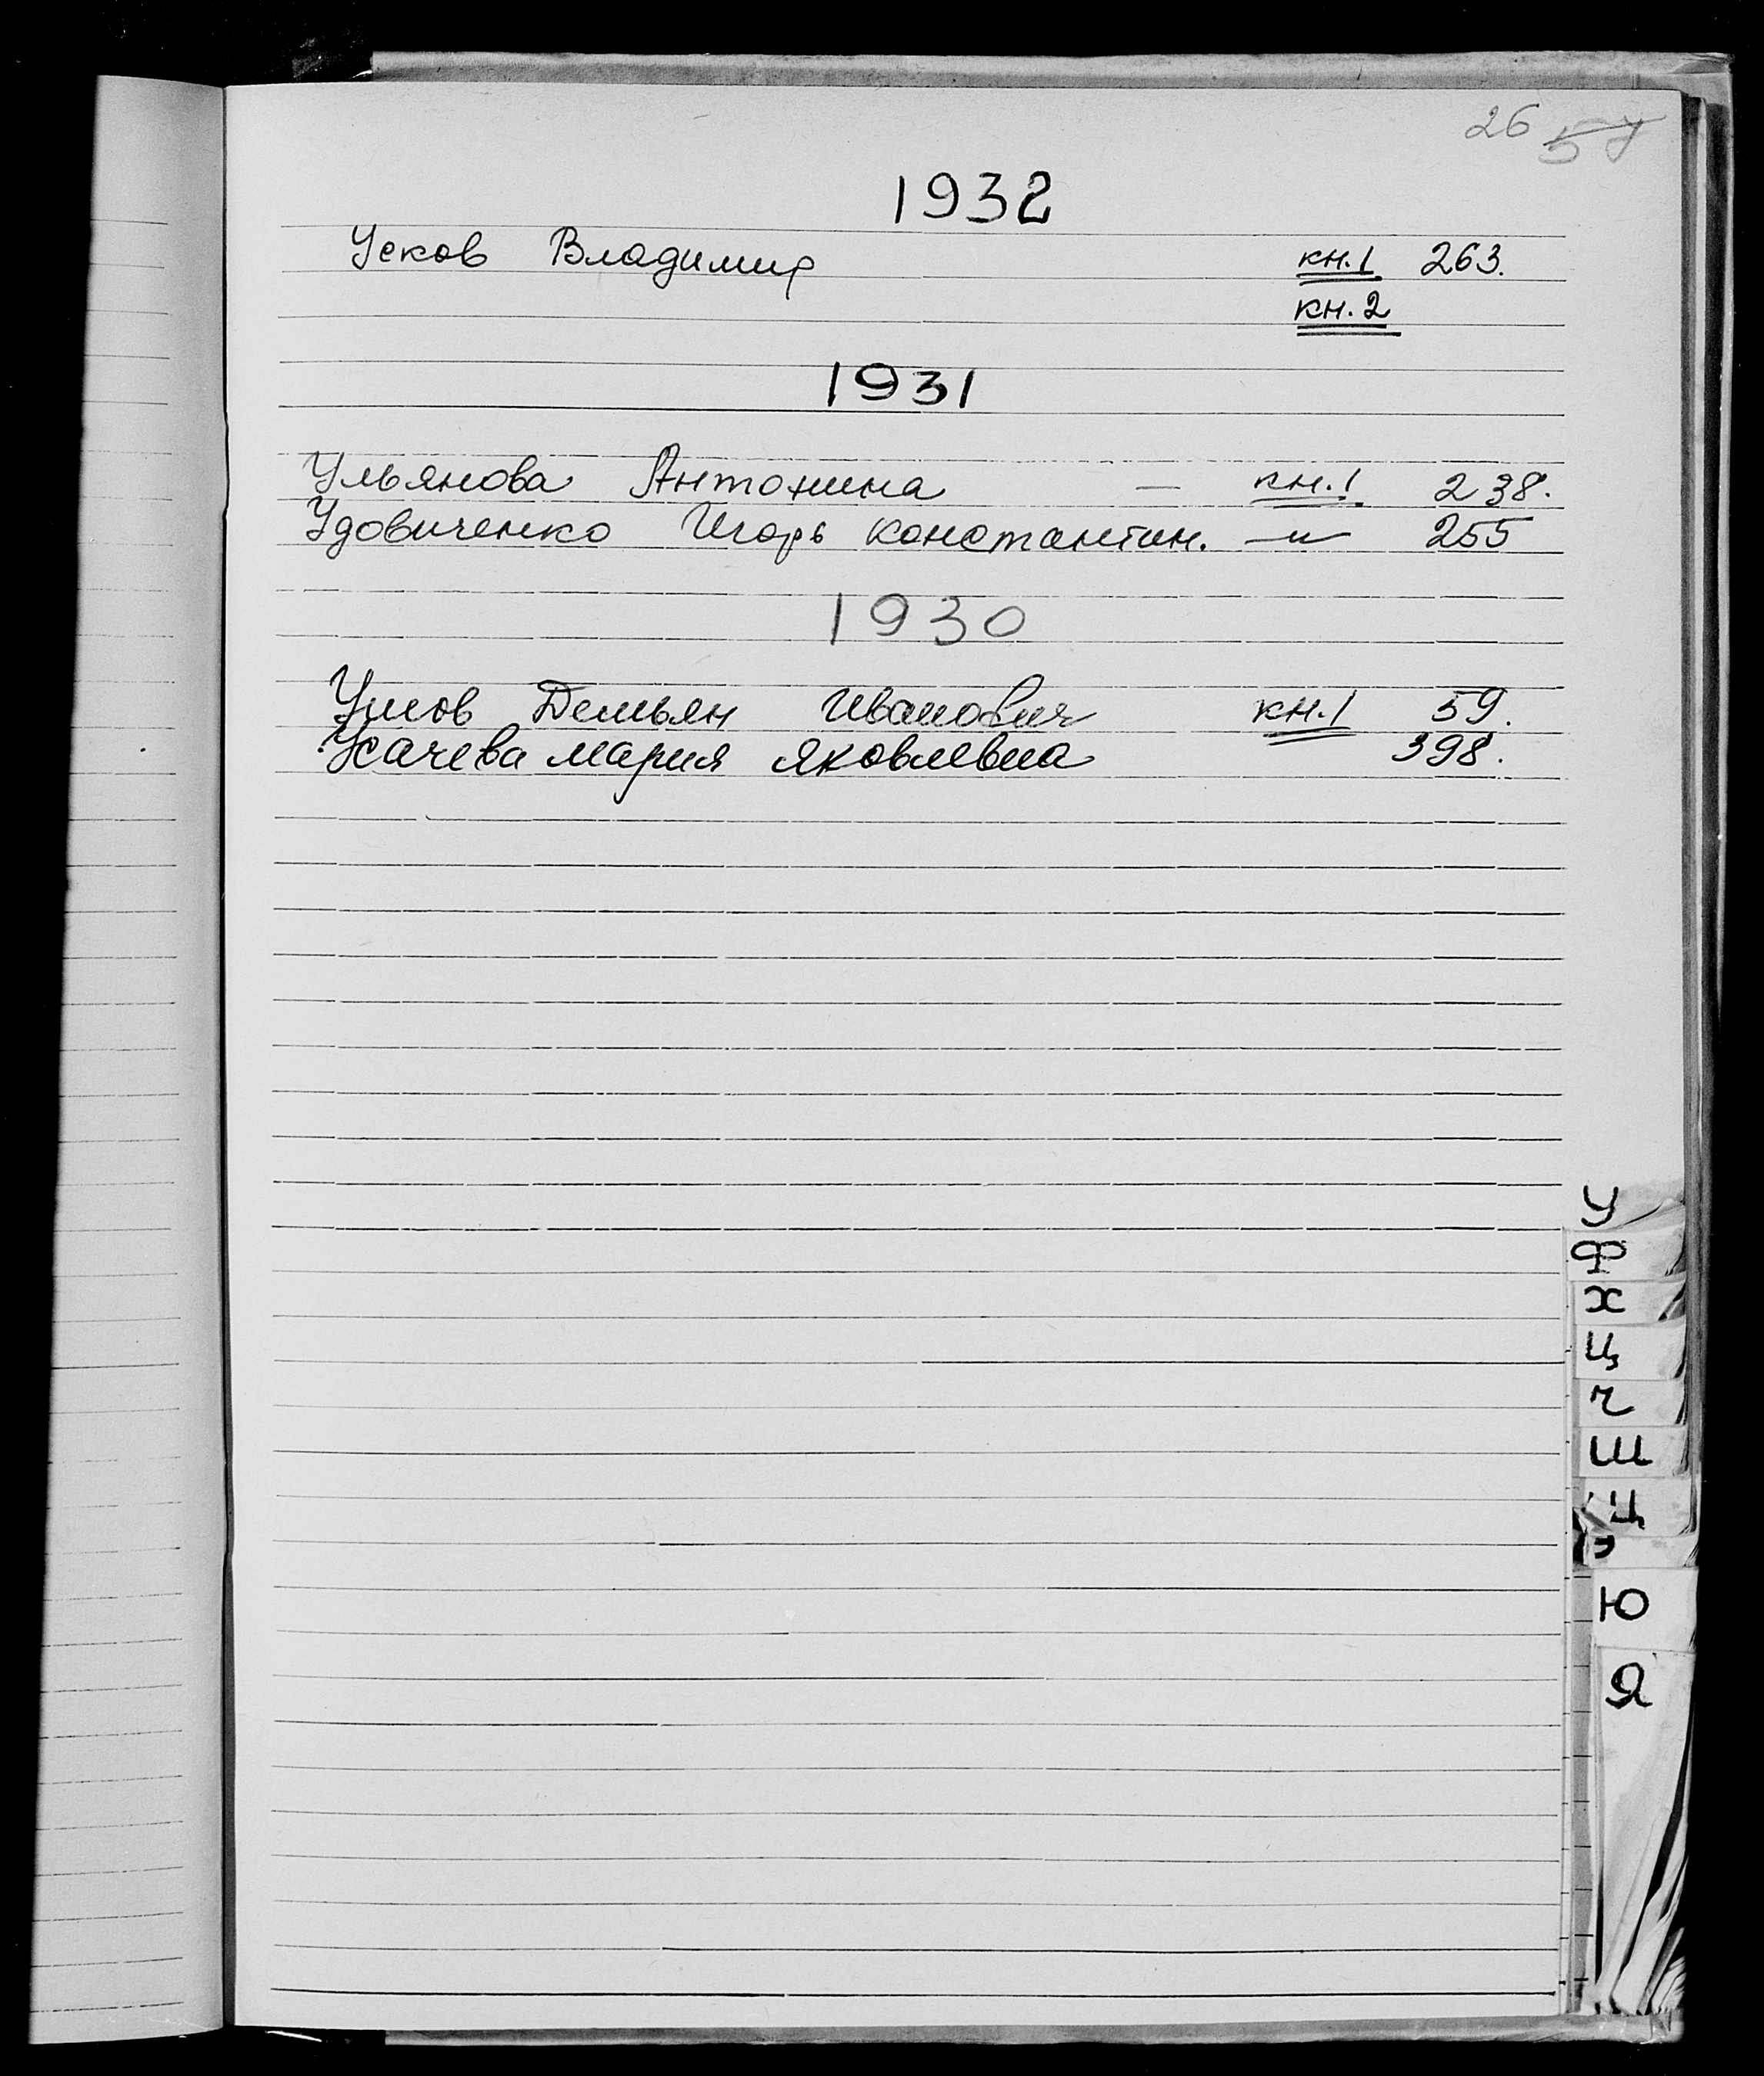 26 57
1932
Усков Владимир кн.1 263.
кн.2
1931
Ульянова Антонина — кн.1 238.
Удовиченко Игорь Константин. —"— 255
1930
Умов Демьян Иванович кн.1 59.
Усачева Мария Яковлевна 398.
У
Ф
Х
Ц
Ч
Ш
Щ
Э
Ю
Я